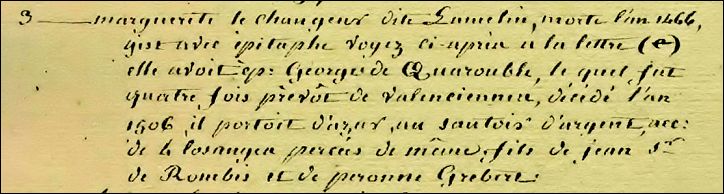 3 — marguerite le changeur dite Lamelin, morte l'an 1466,
gist avec épitaphe voyez ci-après a la lettre (e)
elle avoit ép: George de Quarouble, le quel fut
quatre fois prévôt de valenciennes, décédé l'an
1506, il portoit d'azur, au sautoir d'argent, acc:
de 4 losanges percées de même, fils de jean Sr
de Rombis et de peronne Grebert.